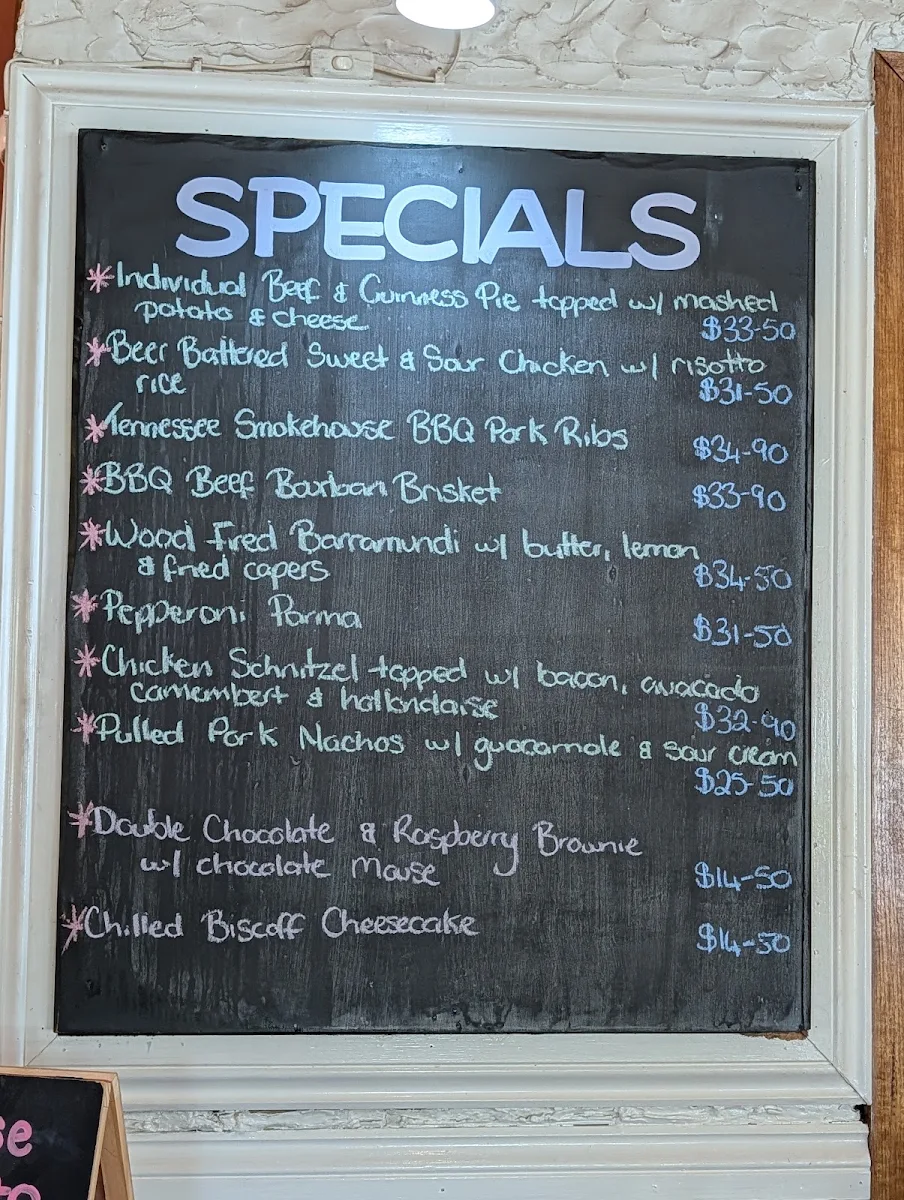 SPECIALS
*Individual Beef & Guinness Pie topped w/ mashed
potato & cheese $33-50
*Beer Battered Sweet & Sour Chicken w/ risotto
rice $31-50
*Tennessee Smokehouse BBQ Pork Ribs $34-90
*BBQ Beef Bourbon Brisket $33-90
*Wood Fired Barramundi w/ butter, lemon
& fried capers $34-50
*Pepperoni Parma $31-50
*Chicken Schnitzel topped w/ bacon, avacado
camembert & hollondaise $32-90
*Pulled Pork Nachos w/ guacamole & sour cream
$25-50
*Double Chocolate & Raspberry Brownie
w/ chocolate mouse $14-50
*Chilled Biscoff Cheesecake $14-50
se
to